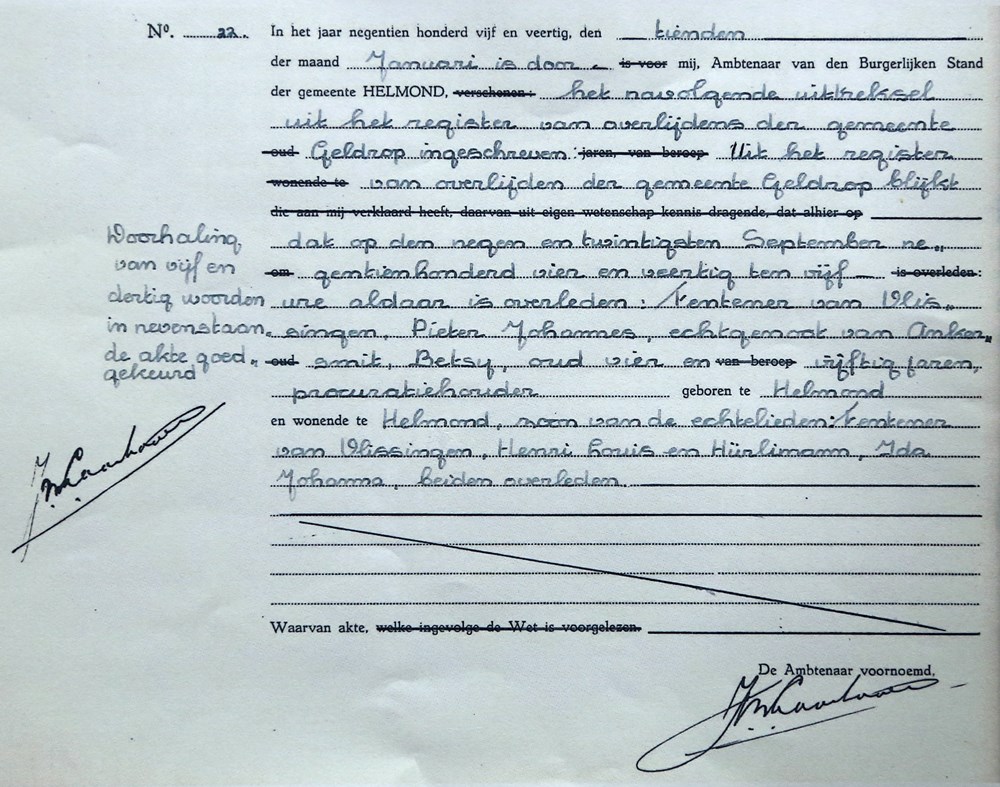 No. 22. In het jaar negentien honderd vijf en veertig, den tienden
der maand Januari is door is voor mij, Ambtenaar van den Burgerlijken Stand
der gemeente HELMOND, verschenen: het navolgende uittreksel
uit het register van overlijdens der gemeente
oud Geldrop ingeschreven: jaren, van beroep Uit het register
wonende te van overlijden der gemeente Geldrop blijkt
die aan mij verklaard heeft, daarvan uit eigen wetenschap kennis dragende, dat alhier op
dat op den negen en twintigsten September ne„
om gentienhonderd vier en veertig ten vijf is overleden:
ure aldaar is overleden: Fentener van Vlis„
singen, Pieter Johannes, echtgenoot van Anker„
oud smit, Betsy, oud vier en van beroep vijftig jaren,
procuratiehouder geboren te Helmond
en wonende te Helmond, zoon van de echtelieden: Fentener
van Vlissingen, Henri Louis en Hürlimann, Ida
Johanna, beiden overleden.
Doorhaling
van vijf en
dertig woorden
in nevenstaan„
de akte goed„
gekeurd
Waarvan akte, welke ingevolge de Wet is voorgelezen.
De Ambtenaar voornoemd,